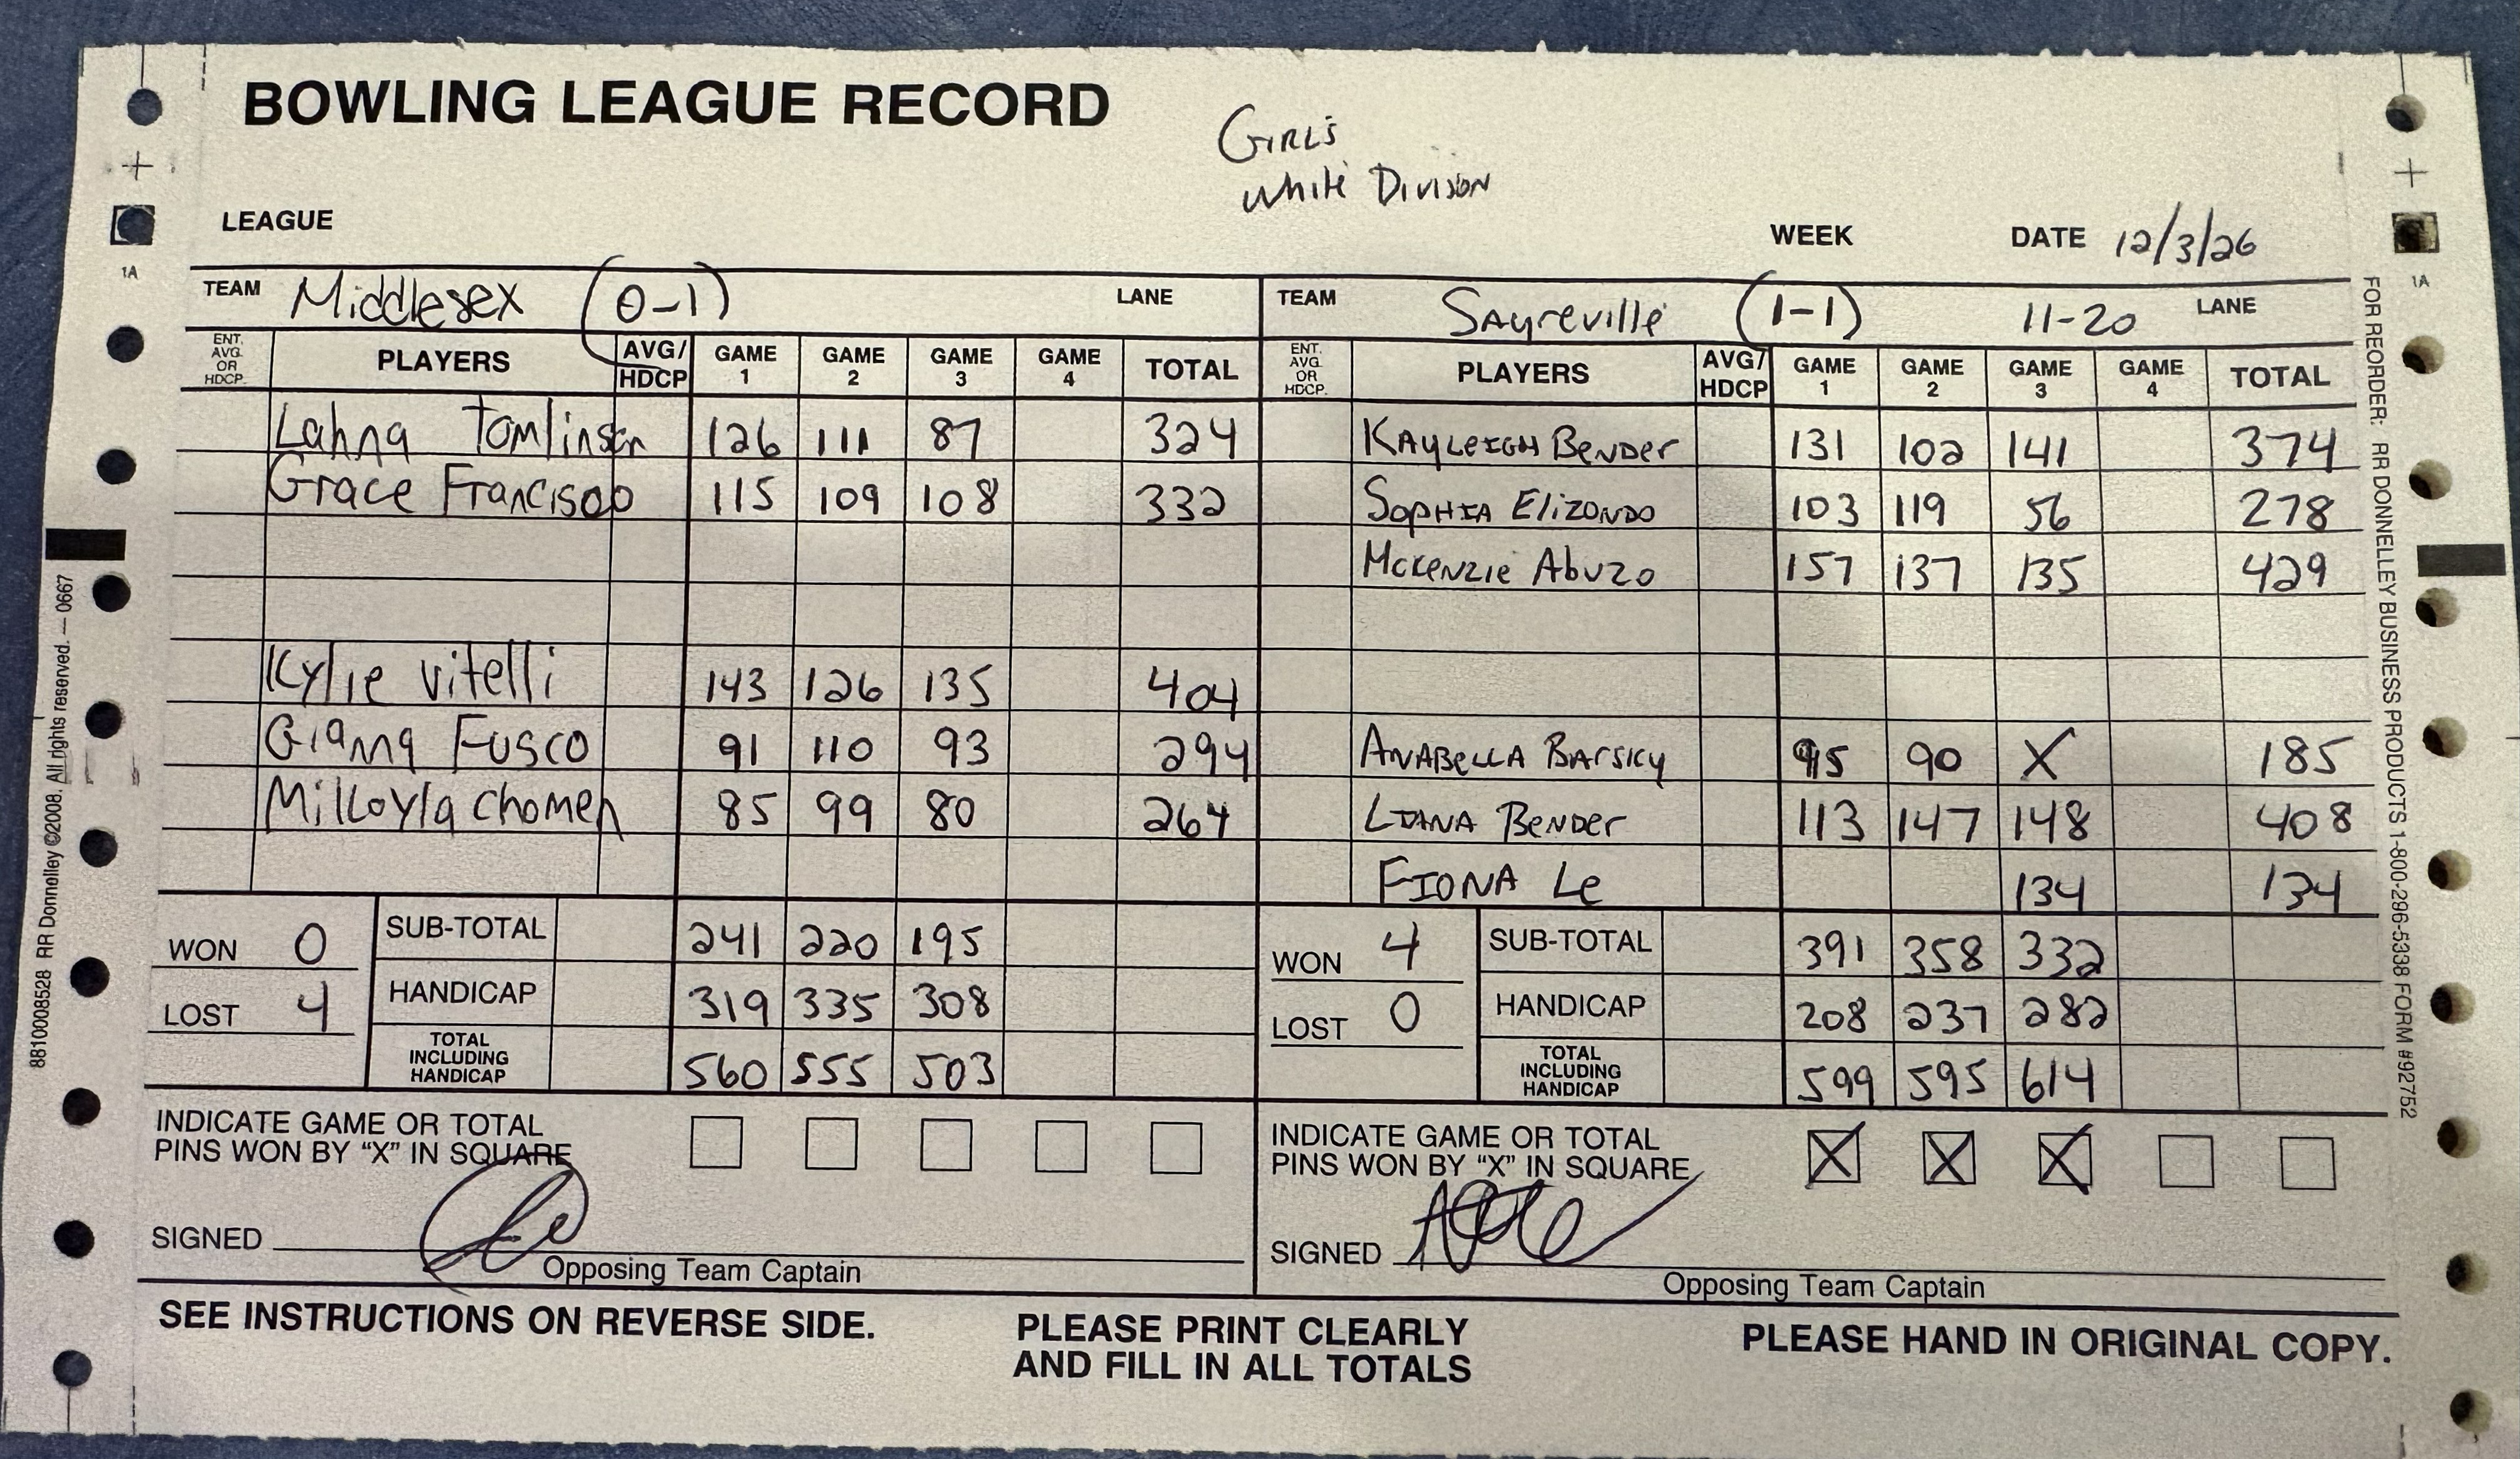 BOWLING LEAGUE RECORD
GIRL'S
White Division
LEAGUE
WEEK DATE 12/3/26
TEAM Middlesex (0-1) LANE TEAM Sayreville (1-1) 11-20 LANE
ENT. AVG. OR HDCP. PLAYERS AVG/ HDCP GAME 1 GAME 2 GAME 3 GAME 4 TOTAL ENT. AVG. OR HDCP. PLAYERS AVG/ HDCP GAME 1 GAME 2 GAME 3 GAME 4 TOTAL
Lahna Tomlinson 126 111 87 324 KAYLEIGH BeNDer 131 102 141 374
Grace Francisco 115 109 108 332 SOPHIA ElizONDO 103 119 56 278
McKenzie Abuzo 157 137 135 429
Kylie Vitelli 143 126 135 404
Gianna Fusco 91 110 93 294 ANABELLA BArsky 95 90 X 185
Mikayla Chomen 85 99 80 264 LIANA BeNDer 113 147 148 408
FIONA Le 134 134
WON 0 SUB-TOTAL 241 220 195 WON 4 SUB-TOTAL 391 358 332
LOST 4 HANDICAP 319 335 308 LOST 0 HANDICAP 208 237 282
TOTAL INCLUDING HANDICAP 560 555 503 TOTAL INCLUDING HANDICAP 599 595 614
INDICATE GAME OR TOTAL PINS WON BY "X" IN SQUARE INDICATE GAME OR TOTAL PINS WON BY "X" IN SQUARE X X X
SIGNED SIGNED
Opposing Team Captain Opposing Team Captain
SEE INSTRUCTIONS ON REVERSE SIDE. PLEASE PRINT CLEARLY AND FILL IN ALL TOTALS PLEASE HAND IN ORIGINAL COPY.
1A
1A
8810008528 RR Donnelley ©2008. All rights reserved. — 0667
FOR REORDER: RR DONNELLEY BUSINESS PRODUCTS 1-800-296-5338 FORM #92752